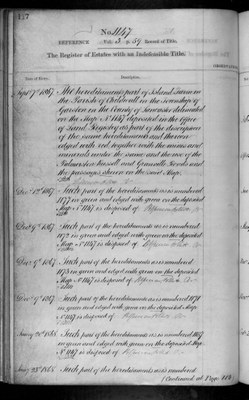 127
No. 1147
REFERENCE Vol. 3 p. 59 Record of Title.
The Register of Estates with an Indefeasible Title.
Date of Entry. Description.
Sept 7th 1867 The hereditaments part of Island Farm in
the Parish of Childwall in the Township of
Garston in the County of Lancaster delineated
on the Map No 1147 deposited in the Office
of Land Registry as part of the description
of the same hereditaments and thereon
edged with red, together with the mines and
minerals under the same and the use of the
Palmerston Russell and Granville Roads and
the passages shewn on the said Map.
Decr 1867 Such part of the hereditaments as is numbered
1177 in green and edged with green on the deposited
Map No 1147 is disposed of
Decr 9th 1867 Such part of the hereditaments as is numbered
1172 in green and edged with green on the deposited
Map No 1147 is disposed of
Decr 9th 1867 Such part of the hereditaments as is numbered
1173 in green and edged with green on the deposited
Map No 1147 is disposed of
Decr 1867 Such part of the hereditaments as is numbered 1171
in green and edged with green on the deposited Map
No 1147 is disposed of
Jany 1868 Such part of the hereditaments as is numbered
in green and edged with green on the deposited Map
No 1147 is disposed of
Jany 23rd 1868 Such part of the hereditaments as is numbered
(Continued at Page